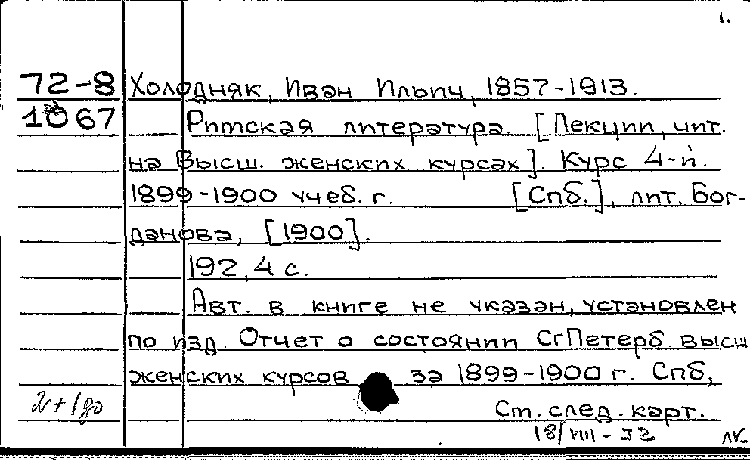 1.
72-8 Холодняк, Иван Ильич, 1857-1913.
1067 Римская литература. [Лекции, чит.
на Высш. женских курсах]. Курс 4-й.
1899-1900 учеб. г. [Спб.], лит. Бог-
данова, [1900].
192, 4 с.
Авт. в книге не указан, установлен
по изд. Отчет о состоянии С.Петерб. высш
женских курсов за 1899-1900 г. Спб,
Ст. след. карт.
18/VIII-